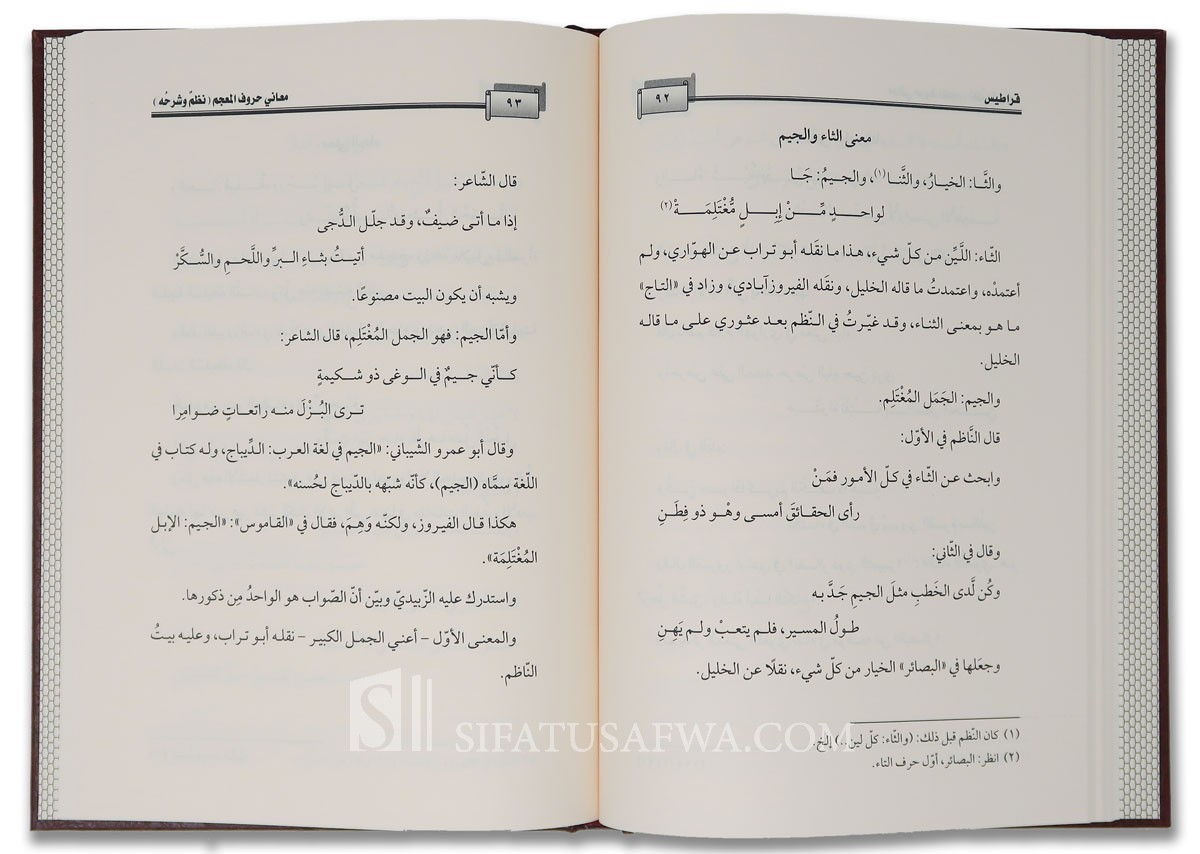 قراطيس
٩٢
معنى الثاء والجيم
والثَّا: الخيارُ، والثَّنا(١)، والجيمُ: جَـا
لواحـدٍ مِّـنْ إِبِـلٍ مُّغْتَلِمَـةْ(٢)
الثّاء: اللَّيِّن من كلّ شيء، هذا ما نقَله أبو تراب عن الهوّاري، ولم
أعتمدْه، واعتمدتُ ما قاله الخليل، ونقَله الفيروزآبادي، وزاد في «التاج»
ما هو بمعنى الثناء، وقد غيّرتُ في النّظم بعد عثوري على ما قاله
الخليل.
والجيم: الجَمَل المُغْتَلِم.
قال النَّاظم في الأوّل:
وابحث عن الثّاء في كلّ الأمور فمَنْ
رأى الحقائقَ أمسى وهْو ذو فِطَنِ
وقال في الثّاني:
وكُن لَدى الخَطبِ مثلَ الجيمِ جَدَّ به
طـولُ المسير، فلـم يتعبْ ولـم يَهِنِ
وجعَلها في «البصائر» الخيار من كلّ شيء، نقلًا عن الخليل.
(١) كان النّظم قبل ذلك: (والثّاء: كلّ لين..) إلخ.
(٢) انظر: البصائر، أوّل حرف الثاء.
معاني حروف المعجم (نظمٌ وشرحُه)
٩٣
قال الشّاعر:
إذا ما أتى ضيفٌ، وقد جلّل الدُّجى
أتيـتُ بثـاءِ البـرِّ واللَّحـمِ والسُّكَّرْ
ويشبه أن يكون البيت مصنوعًا.
وأمّا الجيم: فهو الجمل المُغْتَلِم، قال الشاعر:
كـأنّي جـيـمٌ في الـوغى ذو شـكيمةٍ
تـرى البُـزْلَ منـه راتعـاتٍ ضـوامِرا
وقال أبو عمرو الشّيباني: «الجيم في لغة العرب: الدِّيباج، وله كتاب في
اللّغة سمَّاه (الجيم)، كأنّه شبّهه بالدّيباج لحُسنه».
هكذا قال الفيروز، ولكنّه وَهِمَ، فقال في «القاموس»: «الجيم: الإبل
المُغْتَلِمَة».
واستدرك عليه الزّبيديّ وبيّن أنّ الصّواب هو الواحدُ مِن ذكورها.
والمعنى الأوّل – أعني الجمل الكبير – نقله أبو تراب، وعليه بيتُ
النّاظم.
SIFATUSAFWA.COM